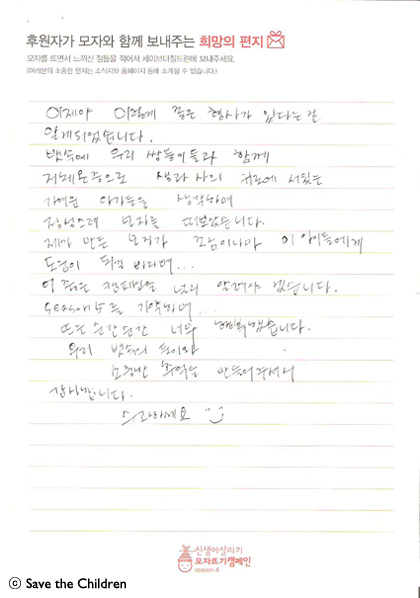 후원자가 모자와 함께 보내주는 희망의 편지
모자를 뜨면서 느끼신 점들을 적어서 세이브더칠드런에 보내주세요.
(여러분의 소중한 편지는 소식지와 홈페이지 등에 소개될 수 있습니다.)
이제야 이렇게 좋은 행사가 있다는걸
알게되었습니다.
뱃속에 우리 쌍둥이들과 함께
저체온증으로 생과 사의 기로에 서있는
가여운 아가들을 생각하며
정성스레 모자를 떠보았습니다.
제가 만든 모자가 조금이나마 이 아이들에게
도움이 되길 바라며...
이 좋은 캠페인을 널리 알려야 겠습니다.
season5를 기약하며...
뜨는 순간순간 너무 행복했습니다.
우리 뱃속의 둥이와
소중한 추억을 만들어주셔서
감사합니다.
수고하세요
신생아살리기
모자뜨기캠페인
season 4
ⓒ Save the Children